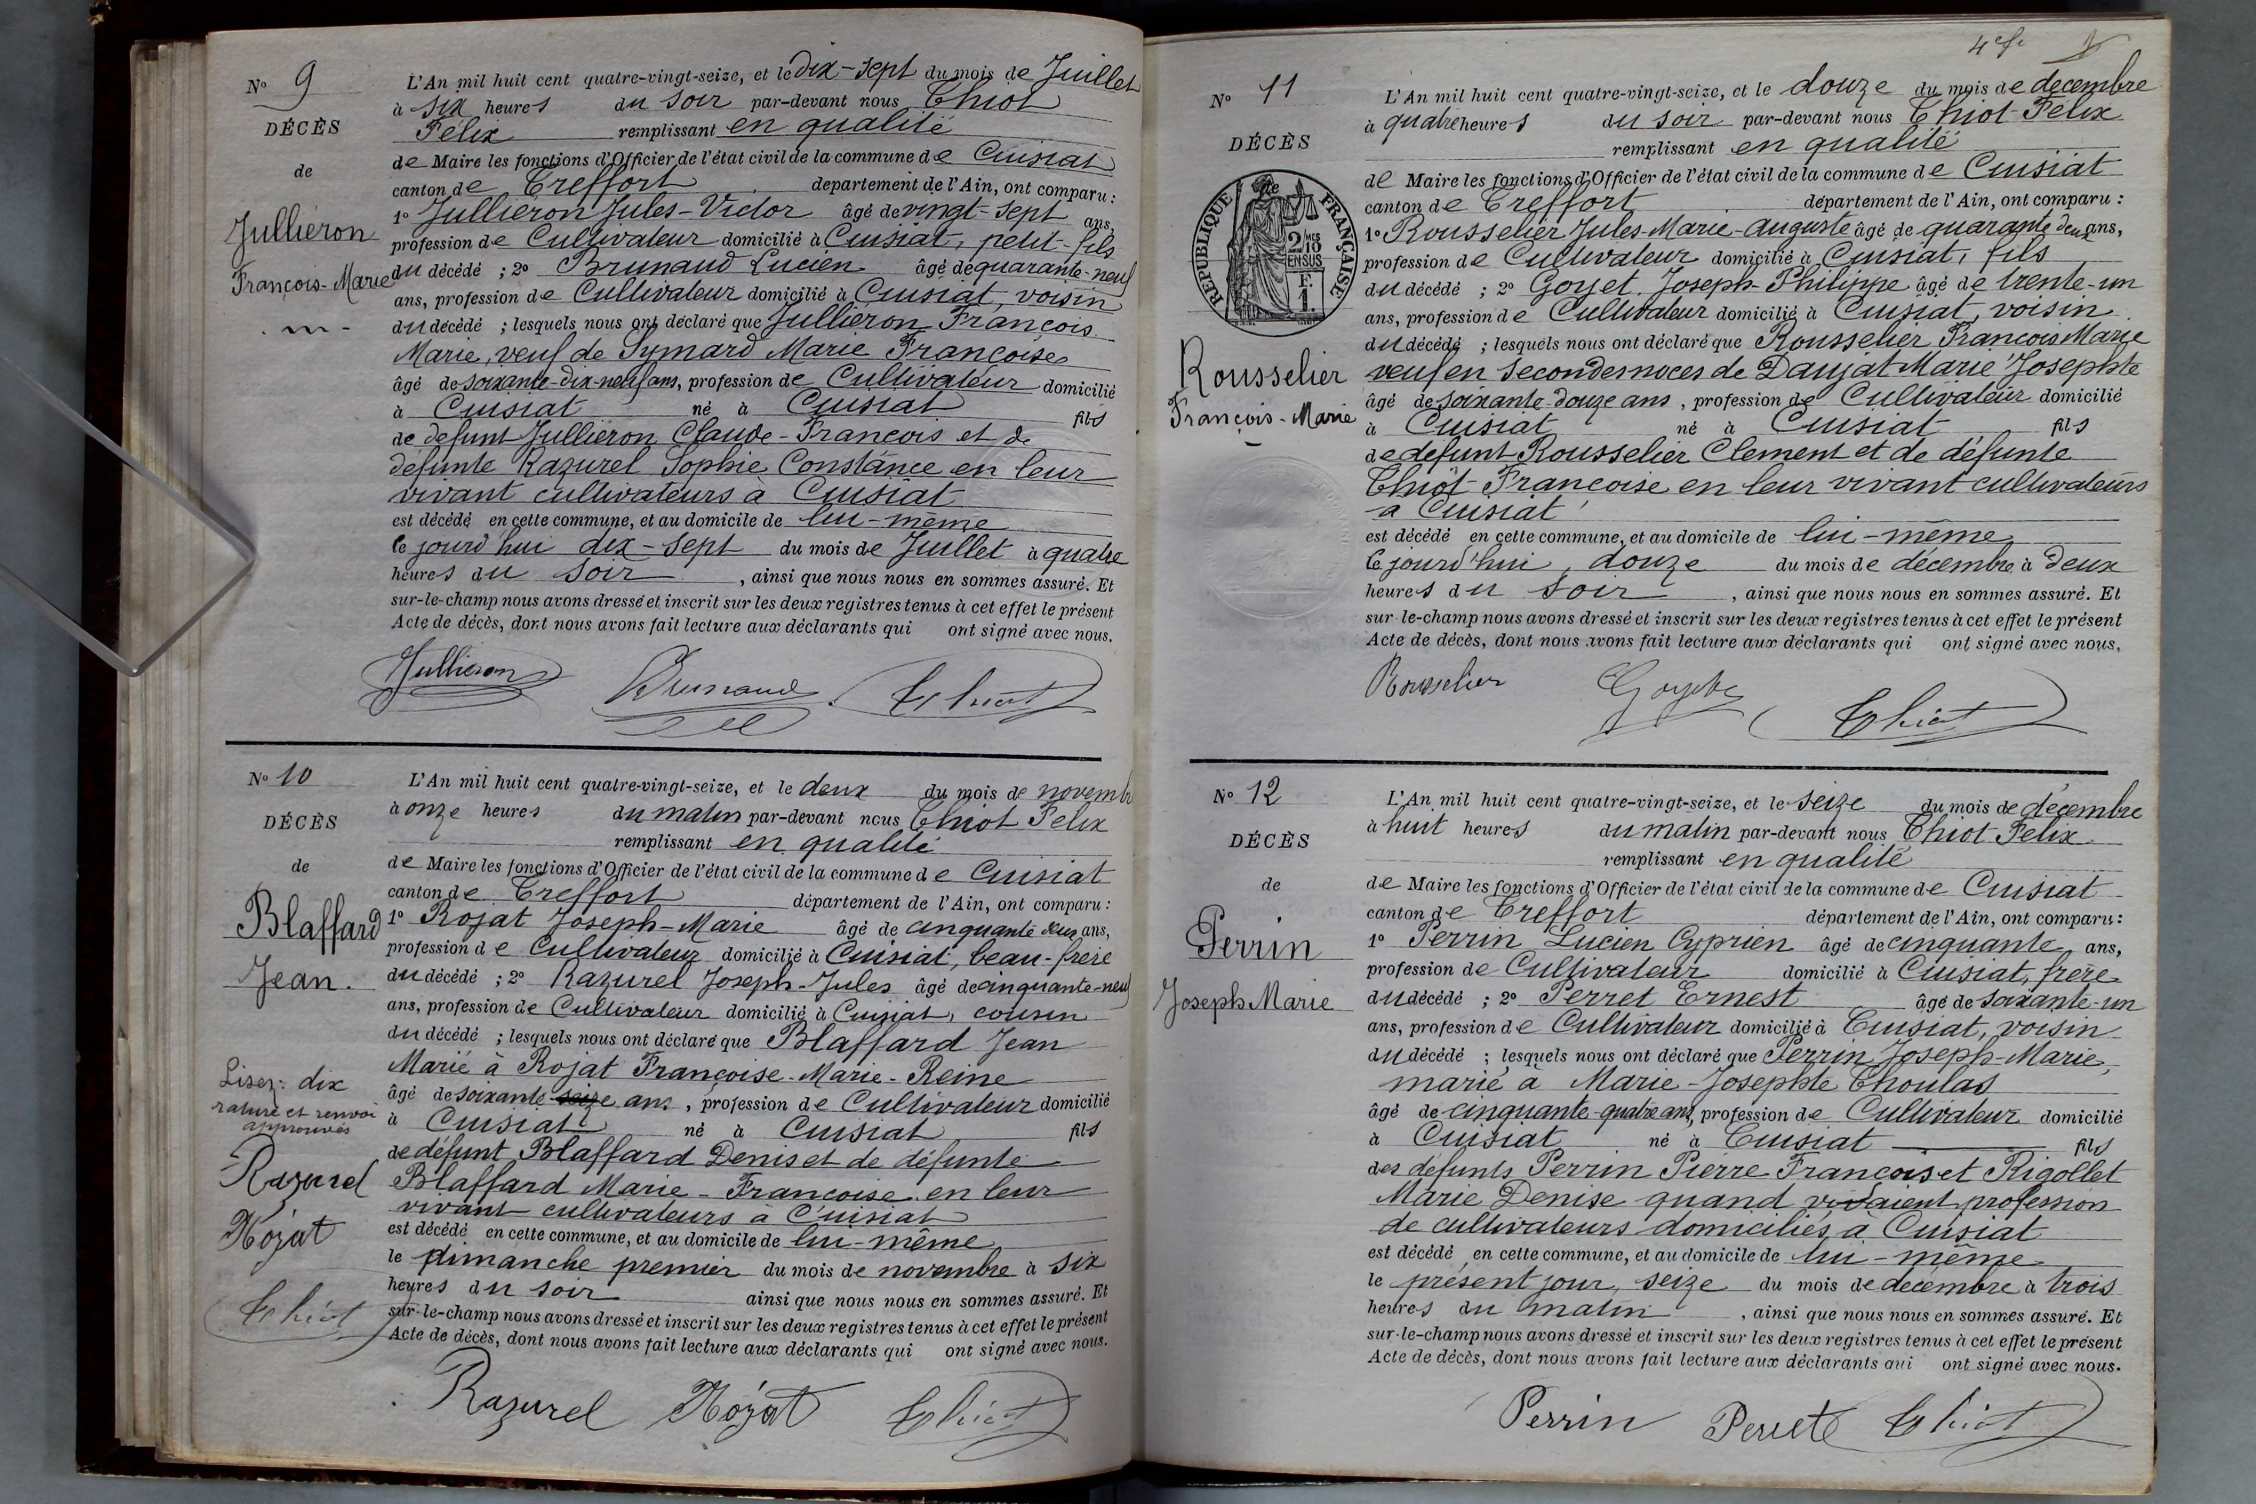 No 9
DÉCÈS
de
Julliéron
François-Marie
L'An mil huit cent quatre-vingt-seize, et le dix-sept du mois de Juillet
à six heures du soir par-devant nous Thiot
Félix remplissant en qualité
de Maire les fonctions d'Officier de l'état civil de la commune de Cuisiat
canton de Treffort departement de l'Ain, ont comparu :
1o Julliéron Jules-Victor âgé de vingt-sept ans,
profession de Cultivateur domicilié à Cuisiat, petit-fils
du décédé ; 2o Brunaud Lucien âgé de quarante-neuf
ans, profession de Cultivateur domicilié à Cuisiat, voisin
du décédé ; lesquels nous ont déclaré que Julliéron François
Marie, veuf de Symard Marie Françoise
âgé de soixante-dix-neuf ans, profession de Cultivateur domicilié
à Cuisiat né à Cuisiat fils
de défunt Julliéron Claude-François et de
défunte Razurel Sophie Constance en leur
vivant cultivateurs à Cuisiat
est décédé en cette commune, et au domicile de lui-même
le jourd'hui dix-sept du mois de Juillet à quatre
heures du soir , ainsi que nous nous en sommes assuré. Et
sur-le-champ nous avons dressé et inscrit sur les deux registres tenus à cet effet le présent
Acte de décès, dont nous avons fait lecture aux déclarants qui ont signé avec nous.
Julliéron Brunaud Thiot
No 10
DÉCÈS
de
Blaffard
Jean.
Lisez: dix
rature et renvoi
approuvés
Razurel
Rojat
Thiot
L'An mil huit cent quatre-vingt-seize, et le deux du mois de novemb
à onze heures du matin par-devant nous Thiot Félix
remplissant en qualité
de Maire les fonctions d'Officier de l'état civil de la commune de Cuisiat
canton de Treffort département de l'Ain, ont comparu :
1o Rojat Joseph-Marie âgé de cinquante deux ans,
profession de Cultivateur domicilié à Cuisiat, beau-frère
du décédé ; 2o Razurel Joseph-Jules âgé de cinquante-neuf
ans, profession de Cultivateur domicilié à Cuisiat, cousin
du décédé ; lesquels nous ont déclaré que Blaffard Jean
Marié à Rojat Françoise-Marie-Reine
âgé de soixante-seize ans , profession de Cultivateur domicilié
à Cuisiat né à Cuisiat fils
de défunt Blaffard Denis et de défunte
Blaffard Marie-Françoise en leur
vivant cultivateurs à Cuisiat
est décédé en cette commune, et au domicile de lui-même
le dimanche premier du mois de novembre à six
heures du soir ainsi que nous nous en sommes assuré. Et
sur-le-champ nous avons dressé et inscrit sur les deux registres tenus à cet effet le présent
Acte de décès, dont nous avons fait lecture aux déclarants qui ont signé avec nous.
Razurel Rojat Thiot
4e fe
No 11
DÉCÈS
de
RÉPUBLIQUE FRANÇAISE
2/10mes
EN SUS
F.
1.
Rousselier
François-Marie
L'An mil huit cent quatre-vingt-seize, et le douze du mois de décembre
à quatre heures du soir par-devant nous Thiot Félix
remplissant en qualité
de Maire les fonctions d'Officier de l'état civil de la commune de Cuisiat
canton de Treffort département de l'Ain, ont comparu :
1o Rousselier Jules-Marie-Auguste âgé de quarante deux ans,
profession de Cultivateur domicilié à Cuisiat, fils
du décédé ; 2o Goyet Joseph-Philippe âgé de trente-un
ans, profession de Cultivateur domicilié à Cuisiat, voisin
du décédé ; lesquels nous ont déclaré que Rousselier François Marie
veuf en secondes noces de Daujat Marie Josephte
âgé de soixante-douze ans , profession de Cultivateur domicilié
à Cuisiat né à Cuisiat fils
de défunt Rousselier Clement et de défunte
Thiot Françoise en leur vivant cultivateurs
à Cuisiat
est décédé en cette commune, et au domicile de lui-même
le jourd'hui, douze du mois de décembre à deux
heures du soir , ainsi que nous nous en sommes assuré. Et
sur-le-champ nous avons dressé et inscrit sur les deux registres tenus à cet effet le présent
Acte de décès, dont nous avons fait lecture aux déclarants qui ont signé avec nous,
Rousselier Goyet Thiot
No 12
DÉCÈS
de
Perrin
Joseph Marie
L'An mil huit cent quatre-vingt-seize, et le seize du mois de décembre
à huit heures du matin par-devant nous Thiot Félix
remplissant en qualité
de Maire les fonctions d'Officier de l'état civil de la commune de Cuisiat
canton de Treffort département de l'Ain, ont comparu :
1o Perrin Lucien Cyprien âgé de cinquante ans,
profession de Cultivateur domicilié à Cuisiat, frère
du décédé ; 2o Perret Ernest âgé de soixante-un
ans, profession de Cultivateur domicilié à Cuisiat, voisin
du décédé ; lesquels nous ont déclaré que Perrin Joseph-Marie,
marié à Marie-Josephte Choulas
âgé de cinquante-quatre ans, profession de Cultivateur domicilié
à Cuisiat né à Cuisiat fils
des défunts Perrin Pierre François et Rigollet
Marie Denise quand vivaient profession
de cultivateurs domiciliés à Cuisiat
est décédé en cette commune, et au domicile de lui-même
le présent jour, seize du mois de décembre à trois
heures du matin , ainsi que nous nous en sommes assuré. Et
sur-le-champ nous avons dressé et inscrit sur les deux registres tenus à cet effet le présent
Acte de décès, dont nous avons fait lecture aux déclarants qui ont signé avec nous.
Perrin Perret Thiot